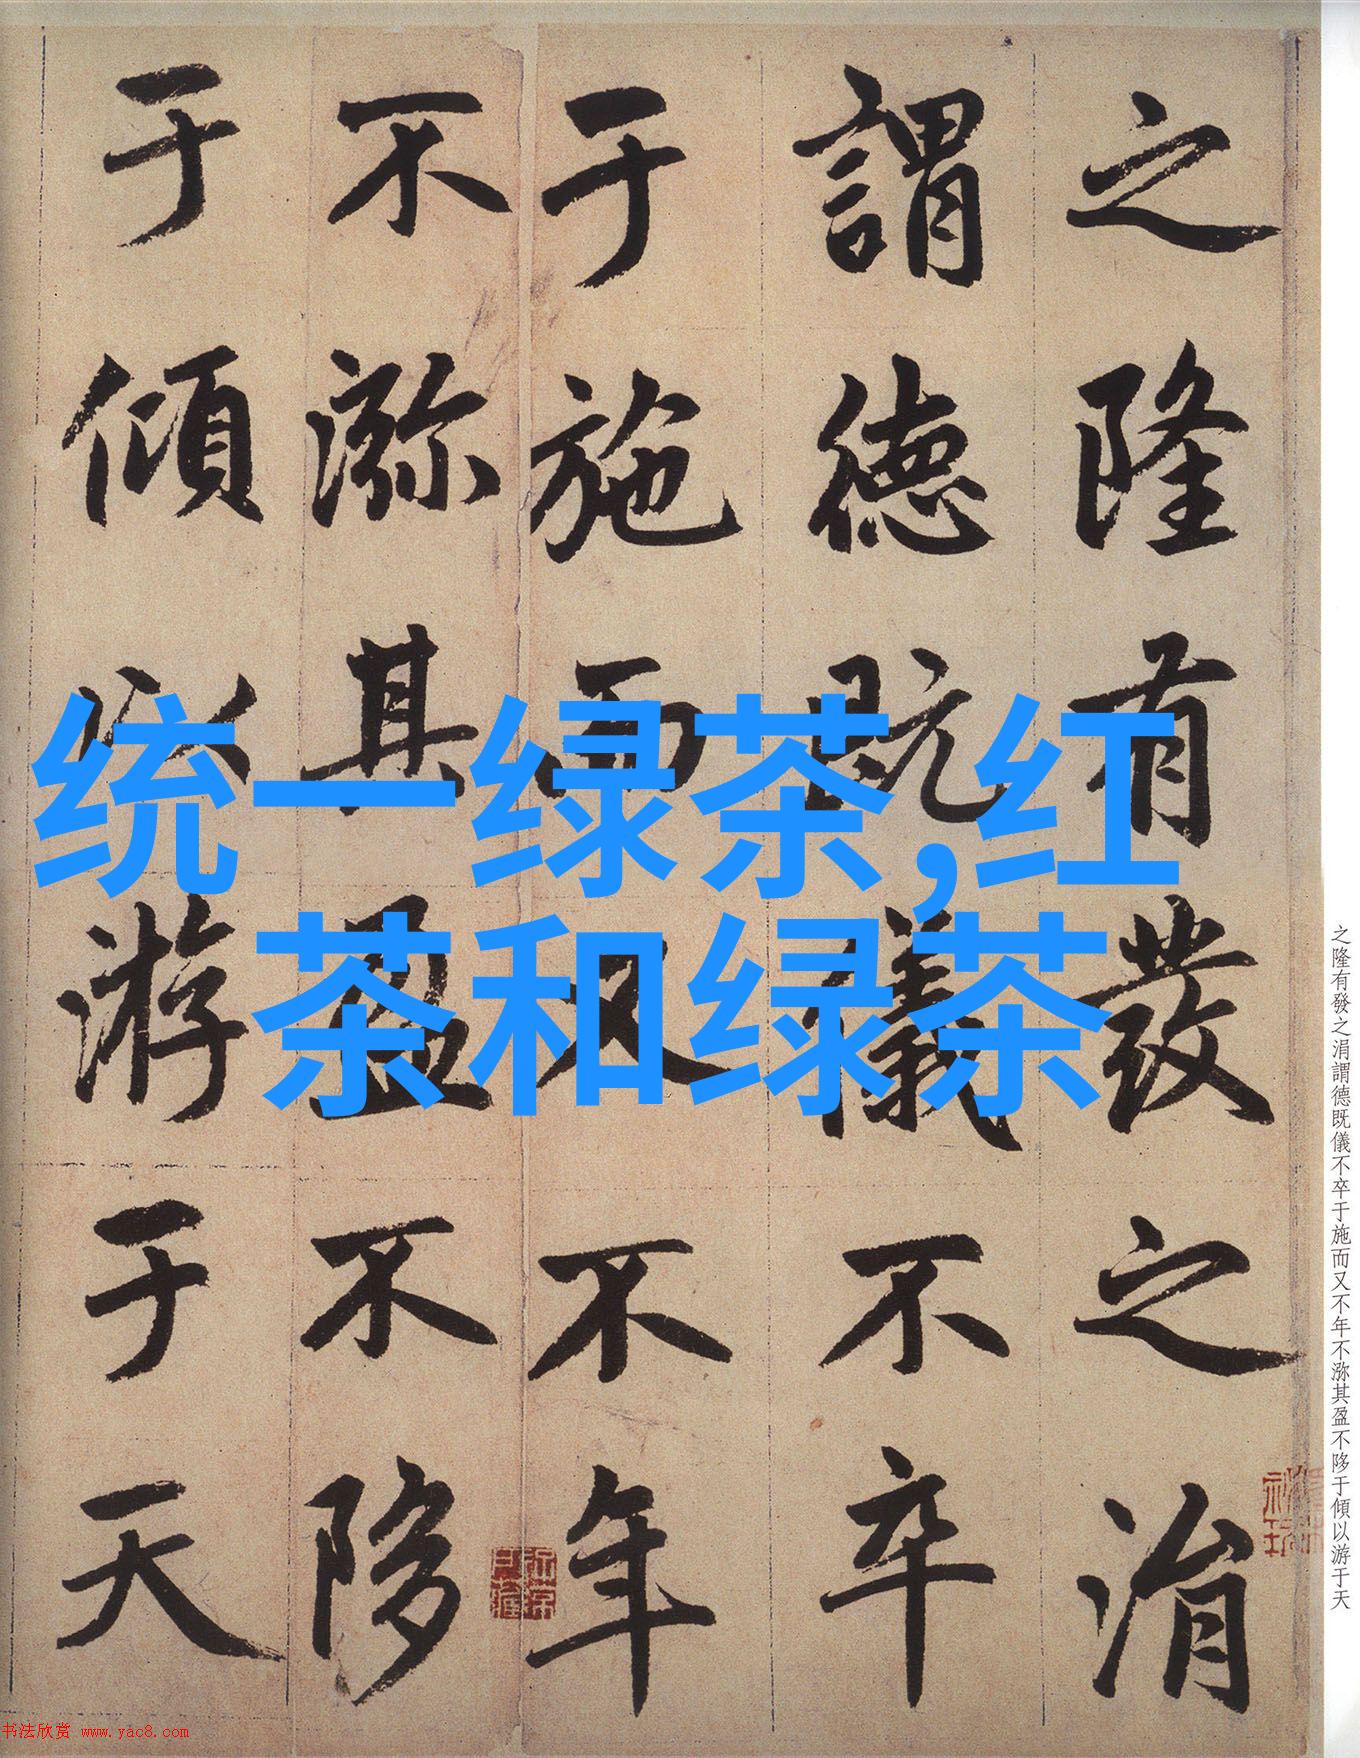 之隆有發之涓
謂德既儀不卒
于施而又不年
不㳽其盈不陊
于傾以游于天
统一绿茶,红
茶和绿茶
之隆有發之涓謂德既儀不卒于施而又不年不㳽其盈不陊于傾以游于天
书法欣赏 www.yac8.com